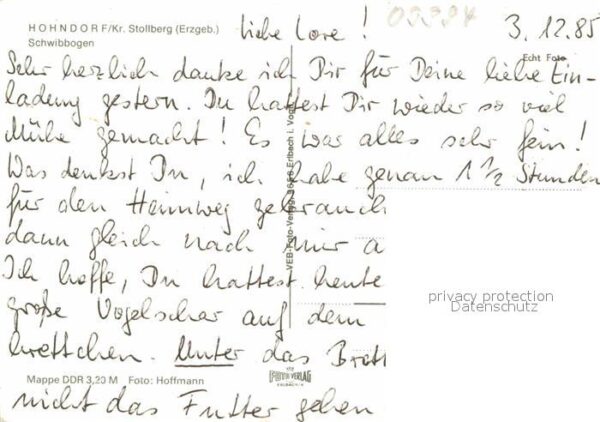 HOHNDORF/Kr. Stollberg (Erzgeb.)
Schwibbogen
09394
Liebe Lore! 3.12.85
Echt Foto
Sehr herzlich danke ich Dir für Deine liebe Ein-
ladung gestern. Du hattest Dir wieder so viel
Mühe gemacht! Es war alles sehr fein!
Was denkst Du, ich habe genau 1 1/2 Stunden
für den Heimweg gebrauch
dann gleich nach mir a
Ich hoffe, Du hattest heute
große Vogelschar auf dem
brettchen. Unter das Brett
nicht das Futter gehen
VEB-Foto-Verlag Erlbach i. Vogtl.
privacy protection
Datenschutz
Mappe DDR 3,20 M Foto: Hoffmann
FOTO-VERLAG
ERLBACH